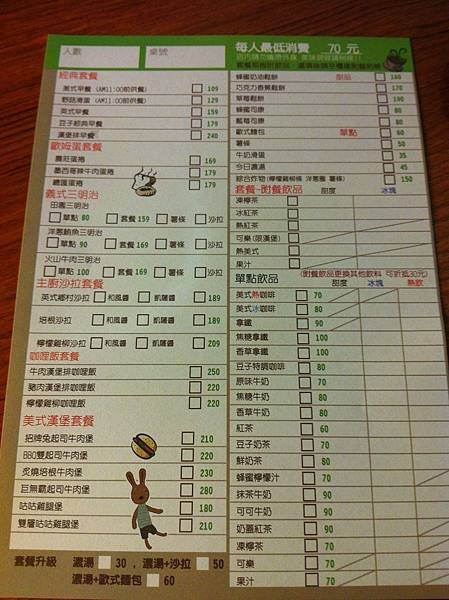 人數
桌號
每人最低消費 70 元
經典套餐
美式早餐 (AM11:00前供餐) 109
野菇滑蛋 (AM11:00前供餐) 129
英式早餐 159
豆子經典早餐 179
漢堡排早餐 240
歐姆蛋套餐
農莊蛋捲 169
墨西哥辣牛肉蛋捲 179
總匯蛋捲 179
義式三明治
田園三明治
單點 80 套餐 159 薯條 沙拉
洋蔥鮪魚三明治
單點 90 套餐 169 薯條 沙拉
火山牛肉三明治
單點 100 套餐 169 薯條 沙拉
主廚沙拉套餐
英式鄉村沙拉 和風醬 凱薩醬 189
培根沙拉 和風醬 凱薩醬 189
檸檬雞柳沙拉 和風醬 凱薩醬 209
咖哩飯套餐
牛肉漢堡排咖哩飯 250
豬肉漢堡排咖哩飯 220
檸檬雞柳咖哩飯 220
美式漢堡套餐
招牌兔起司牛肉堡 210
BBQ雙起司牛肉堡 220
炙燒培根牛肉堡 230
巨無霸起司牛肉堡 280
咕咕雞腿堡 180
雙層咕咕雞腿堡 210
套餐升級 濃湯 30 . 濃湯+沙拉 50
濃湯+歐式麵包 60
蜂蜜奶油鬆餅 甜品 160
巧克力香蕉鬆餅 170
草莓鬆餅 190
蜂蜜司康 80
藍莓司康 80
歐式麵包 單點 60
薯條 50
牛奶滑蛋 35
今日濃湯 45
綜合炸物(檸檬雞柳條 洋蔥圈 薯條) 150
套餐-附餐飲品 甜度 冰塊
凍檸茶
冰紅茶
熱紅茶
可樂(限漢堡)
熱美式
果汁
單點飲品 (附餐飲品更換其他飲料 可折抵30元)
甜度 冰塊 熱飲
美式熱咖啡 70
美式冰咖啡 80
拿鐵 90
焦糖拿鐵 100
香草拿鐵 100
豆子特調咖啡 80
原味牛奶 70
焦糖牛奶 80
香草牛奶 80
紅茶 60
豆子奶茶 70
鮮奶茶 80
蜂蜜檸檬汁 70
抹茶牛奶 90
可可牛奶 90
奶蓋紅茶 90
凍檸茶 70
可樂 70
果汁 70